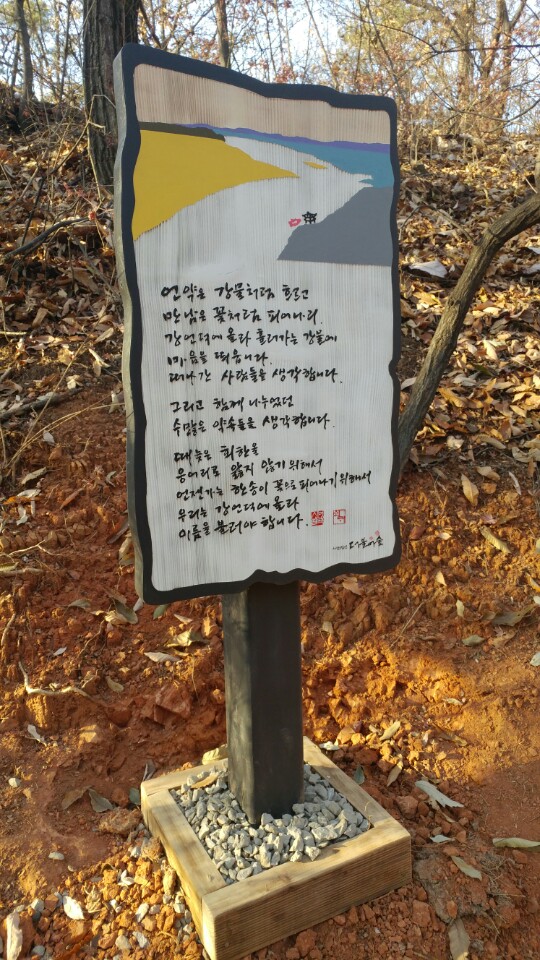 언약은 강물처럼 흐르고
만남은 꽃처럼 피어나리
강언덕에 올라 흘러가는 강물에
마음을 띄웁니다.
떠나간 사람들을 생각합니다.
그리고 함께 나누었던
수많은 약속들을 생각합니다.
때늦은 회한을
응어리로 앓지 않기 위해서
언젠가는 한송이 꽃으로 피어나기 위해서
우리는 강언덕에 올라
이름을 불러야 합니다.